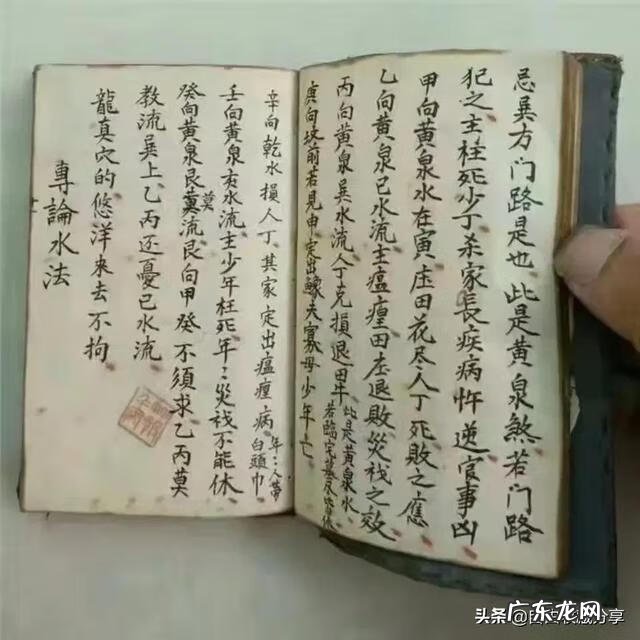 忌巽方门路是也此是黄泉煞若门路
犯之主枉死少丁杀家長疾病忤逆官事凶
甲向黄泉水在寅庄田花尽人丁死敗之應
乙向黄泉巳水流主瘟㾮田庄退敗災伐之效
丙向黄泉巽水流人丁克損退田牛
此是黄泉水
若臨定墓
庚向坟前若見申定出鰥夫寡母少年亡
辛向乾水損人丁其家定出瘟㾮病
年々人帶
白頭巾
壬向黄泉亥水流主少年枉死年々災伐不能休
癸向黄泉艮莫流艮向甲癸不須求乙丙莫
莫
教流巽上乙丙还憂巳水流
龍真穴的悠洋来去不拘
專論水法
头条
广东龙网
分享